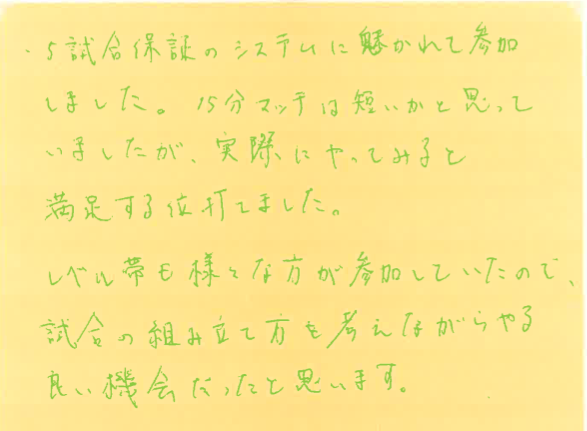 ・5試合保証のシステムに魅かれて参加
しました。15分マッチは短いかと思って
いましたが、実際にやってみると
満足する位打てました。
レベル帯も様々な方が参加していたので、
試合の組み立て方を考えながらやる
良い機会だったと思います。